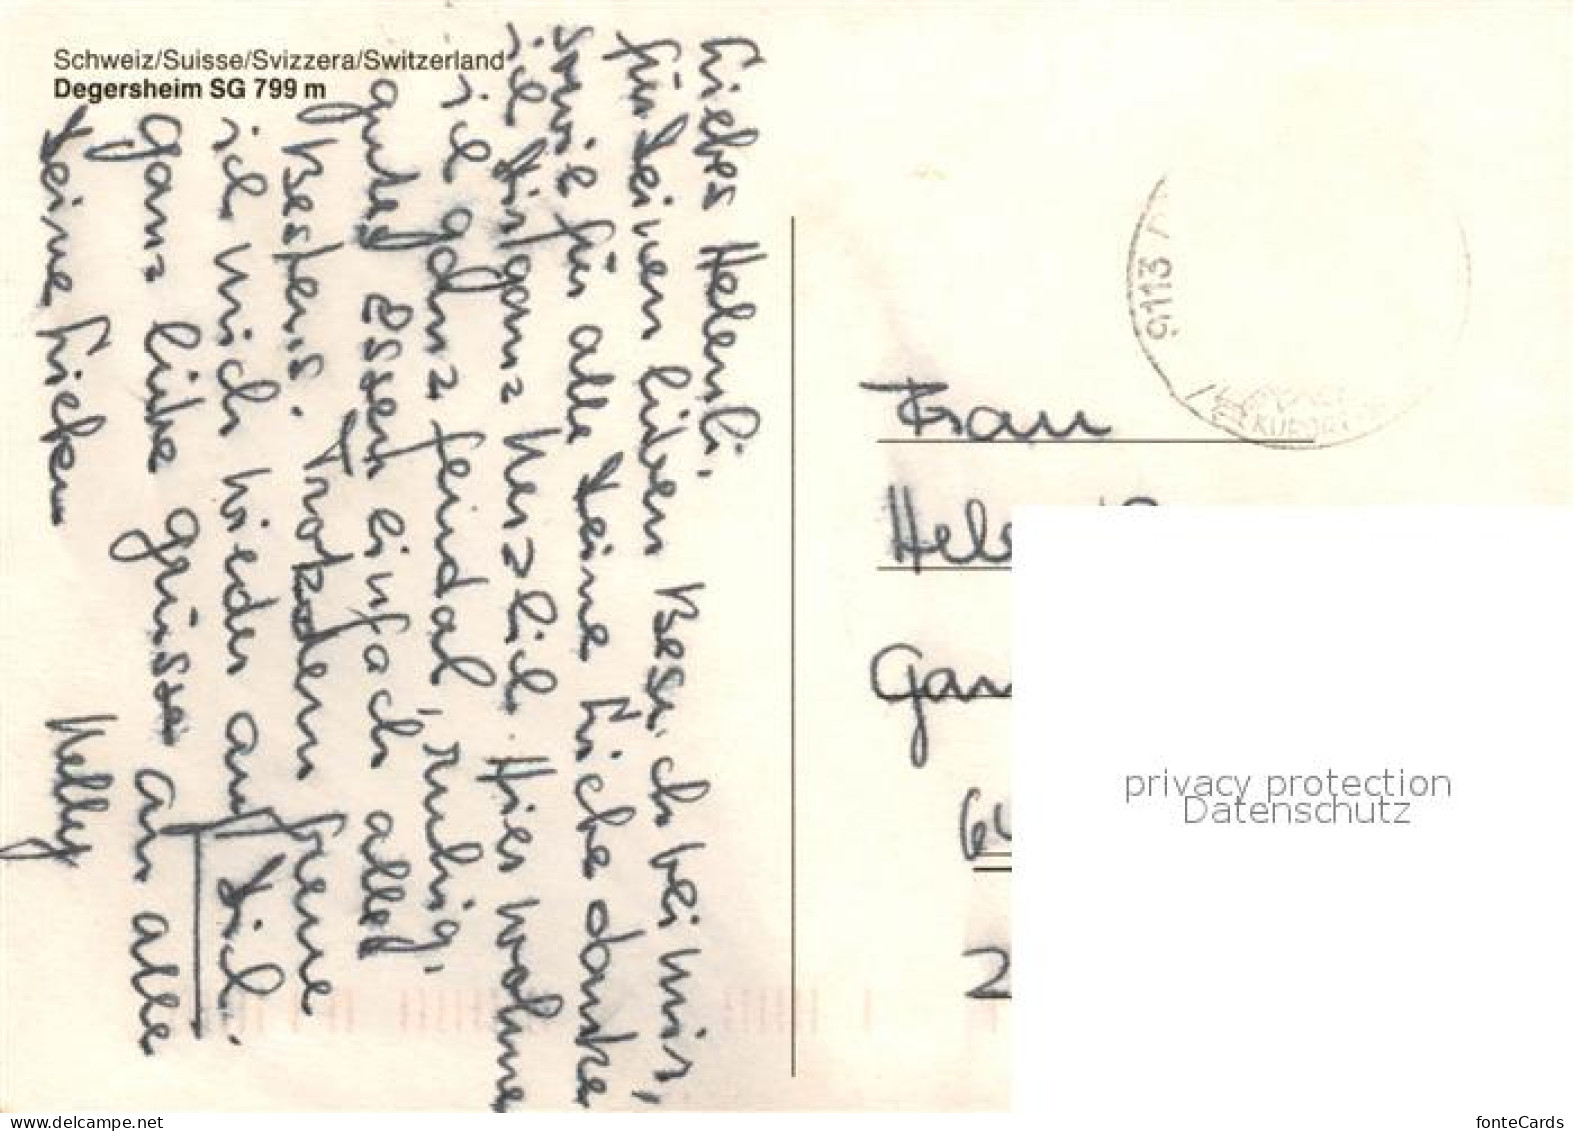 Schweiz/Suisse/Svizzera/Switzerland
Degersheim SG 799 m
Liebes Helenli,
für Deinen lieben Besuch bei mir,
sowie für alle Deine Liebe danke
ich Dir ganz herzlich. Hier wohne
ich ganz feudal, ruhig,
gutes Essen einfach alles
Bestens. Trotzdem freue
ich mich wieder auf Dich.
Ganz liebe Grüsse an alle
Deine Lieben
Nelly
9113
Frau
Hel
Gan
privacy protection
Datenschutz
www.delcampe.net
fonteCards